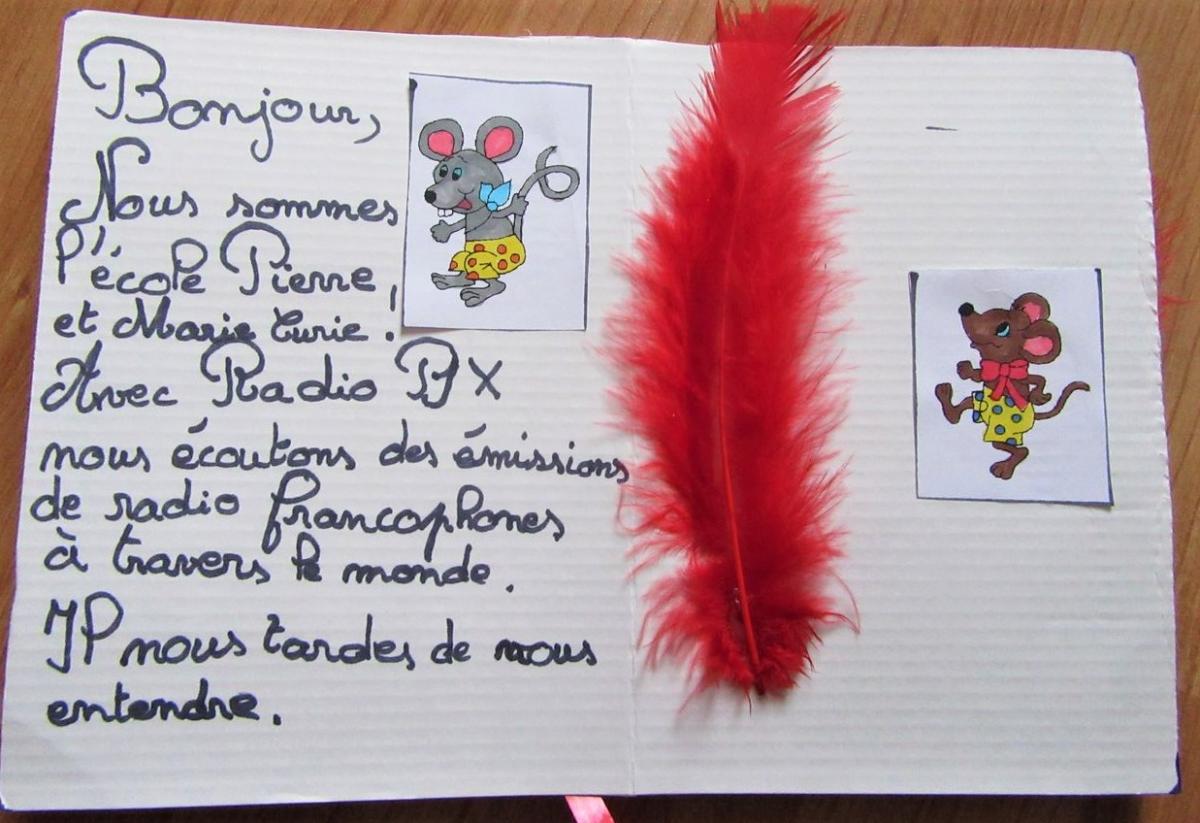 Bonjour,
Nous sommes
l'école Pierre
et Marie Curie !
Avec Radio BX
nous écoutons des émissions
de radio francophones
à travers le monde.
Il nous tardes de vous
entendre.